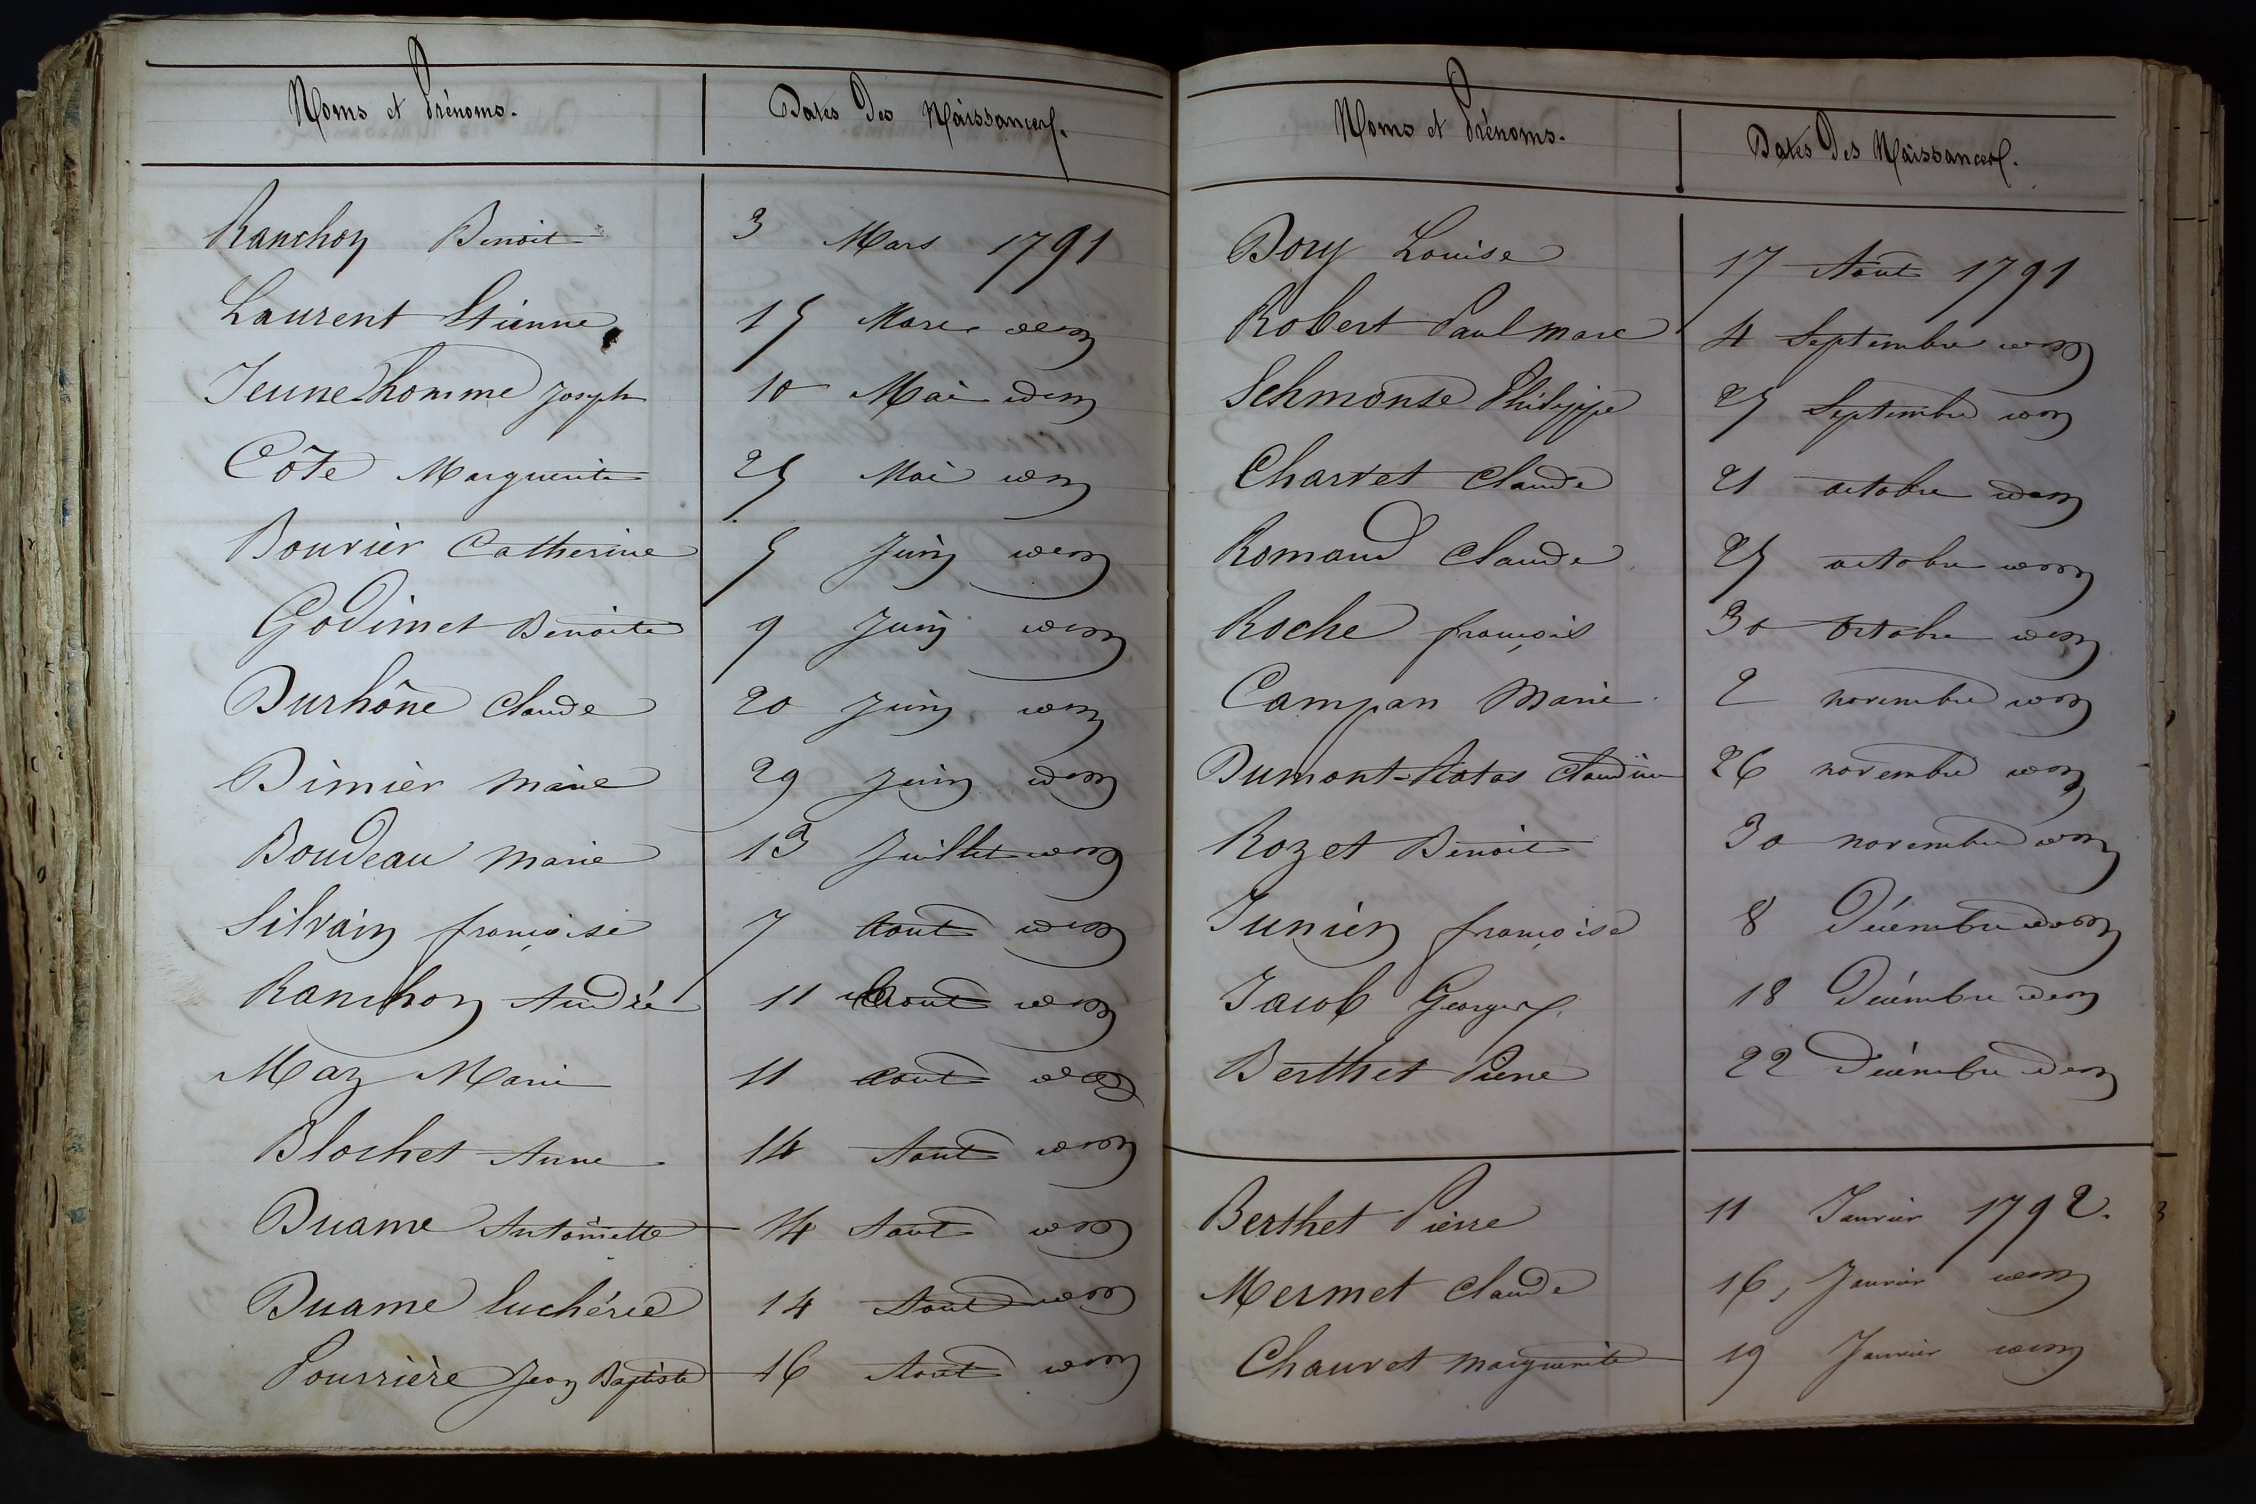 Noms et Prénoms. Dates des Naissances.
Ranchon Benoit 3 Mars 1791
Laurent Etienne 15 Mars idem
Jeunehomme Joseph 10 Mai idem
Côte Marguerite 25 Mai idem
Bouvier Catherine 5 Juin idem
Godimet Benoite 9 Juin idem
Durhône Claude 20 Juin idem
Dimier Marie 29 Juin idem
Boudeau Marie 13 Juillet idem
Silvain françoise 7 Aout idem
Ranchon André 11 Aout idem
Maz Marie 11 aout idem
Blochet Anne 14 Aout idem
Duame Antoinette 14 Aout idem
Duame luchérie 14 Aout idem
Pourrière Jean Baptiste 16 Aout idem
Noms et Prénoms. Dates des Naissances.
Dory Louise 17 Aout 1791
Robert Paul Marc 4 Septembre idem
Schmonse Philippe 25 Septembre idem
Charvet Claude 21 octobre idem
Romand Claude 25 octobre idem
Roche françois 30 Octobre idem
Campan Marie 2 novembre idem
Dumont Claudine 26 novembre idem
Rozet Benoit 30 novembre idem
Junien françoise 8 Décembre idem
Jacob Georges 18 Décembre idem
Berthet Pierre 22 Décembre idem
Berthet Pierre 11 Janvier 1792.
Mermet Claude 16, Janvier idem
Chauvet Marguerite 19 Janvier idem